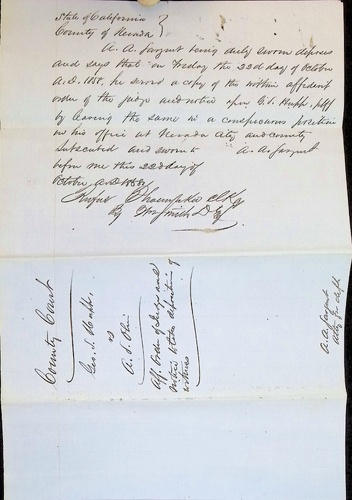 State of California }
County of Nevada }
A. A. Sargent being duly sworn deposes
and says that on Friday the 22d day of October
A.D. 1858, he served a copy of the within affidavit
order of the judge and notice upon G. S. Hupp, plff
by leaving the same in a conspicuous position
in his office at Nevada City and county
Subscribed and sworn to A. A. Sargent
before me this 22d day of
October A.D. 1858
Rufus Shoemaker Clk
By Wm Smith Dy
County Court
Geo. S. Hupp
vs
A. S.
Aff. Order of Judge and
notice to take deposition of
witness
A. A. Sargent
Atty for deft